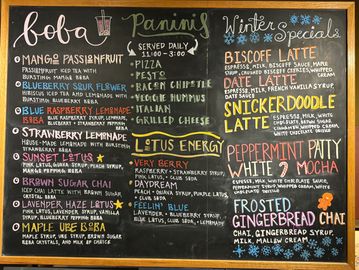 boba
MANGO PASSIONFRUIT
PASSIONFRUIT ICED TEA WITH
BURSTING MANGO BOBA
BLUEBERRY SOUR FLOWER
HIBISCUS ICED TEA AND LEMONADE WITH
BURSTING BLUEBERRY BOBA
BLUE RASPBERRY LEMONADE
BOBA
BLUE RASPBERRY SYRUP, LEMONADE,
BOBA
STRAWBERRY LEMONADE
HOUSE-MADE LEMONADE WITH BURSTING
STRAWBERRY BOBA
SUNSET LOTUS
PINK LOTUS, GUAVA SYRUP, PEACH SYRUP,
MANGO POPPING BOBA
BROWN SUGAR CHAI
ICED CHAI LATTE WITH BROWN SUGAR
CRYSTAL BOBA
LAVENDER HAZE LOTUS
PINK LOTUS, LAVENDER SYRUP, VANILLA
SYRUP, BLUEBERRY POPPING BOBA
MAPLE UBE BOBA
MAPLE SYRUP, UBE SYRUP, BROWN SUGAR
BOBA CRYSTALS, AND MILK OF CHOICE
Paninis
SERVED DAILY
11:00 - 3:00
PIZZA
PESTO
BACON CHIPOTLE
VEGGIE HUMMUS
ITALIAN
GRILLED CHEESE
LOTUS ENERGY
VERY BERRY
RASPBERRY + STRAWBERRY SYRUP,
PINK LOTUS, + CLUB SODA
DAYDREAM
PEACH + GUAVA SYRUP, PURPLE LOTUS,
+ CLUB SODA
FEELIN' BLUE
LAVENDER + BLUEBERRY SYRUP,
BLUE LOTUS, + CLUB SODA
Winter
Specials
BISCOFF LATTE
ESPRESSO, MILK, BISCOFF SAUCE, MAPLE
SYRUP, CRUSHED BISCOFF COOKIES, WHIPPED
CREAM
DATE LATTE
ESPRESSO, MILK, FRENCH VANILLA SYRUP,
DATE SAUCE
SNICKERDOODLE
LATTE
ESPRESSO, MILK, WHITE
CHOCOLATE, BROWN SUGAR
CINNAMON, WHIPPED CREAM,
PEPPERMINT PATTY
WHITE MOCHA
ESPRESSO, MILK, WHITE CHOCOLATE SAUCE,
PEPPERMINT SYRUP, WHIPPED CREAM, WHITE
CHOCOLATE
FROSTED
GINGERBREAD CHAI
CHAI, GINGERBREAD SYRUP,
MILK, MALLOW CREAM